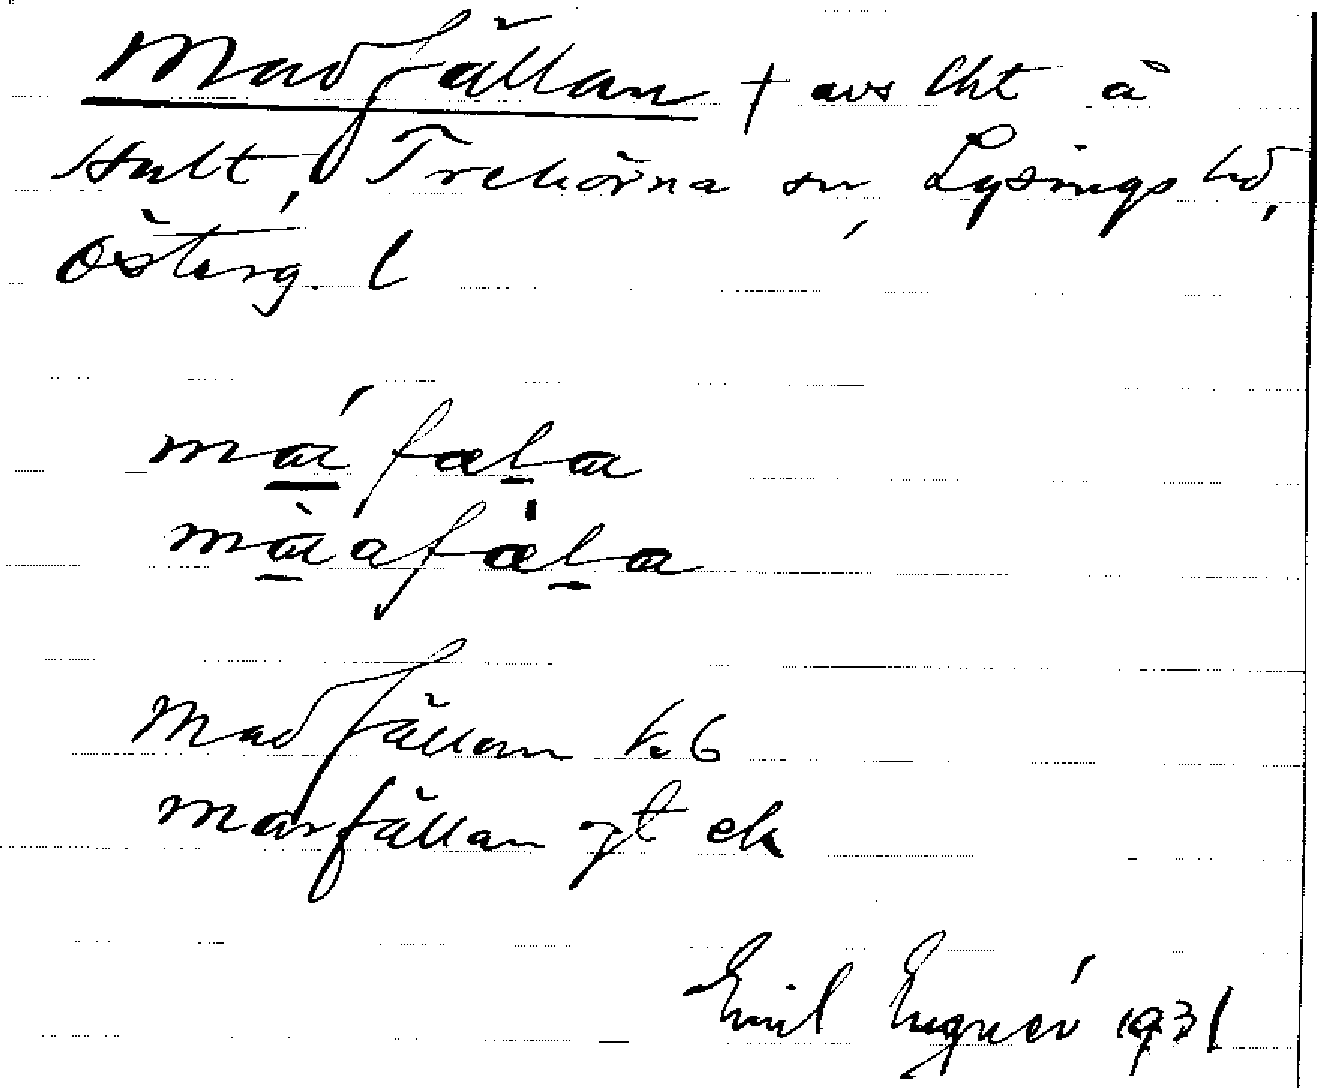 Madfällan † avs lht å
Hult, Trehörna sn, Lysings hd,
Österg. l
máfæḷa
màafæ̀ḷa
Madfällan
marfällan gt ek
Emil Engnér 1931